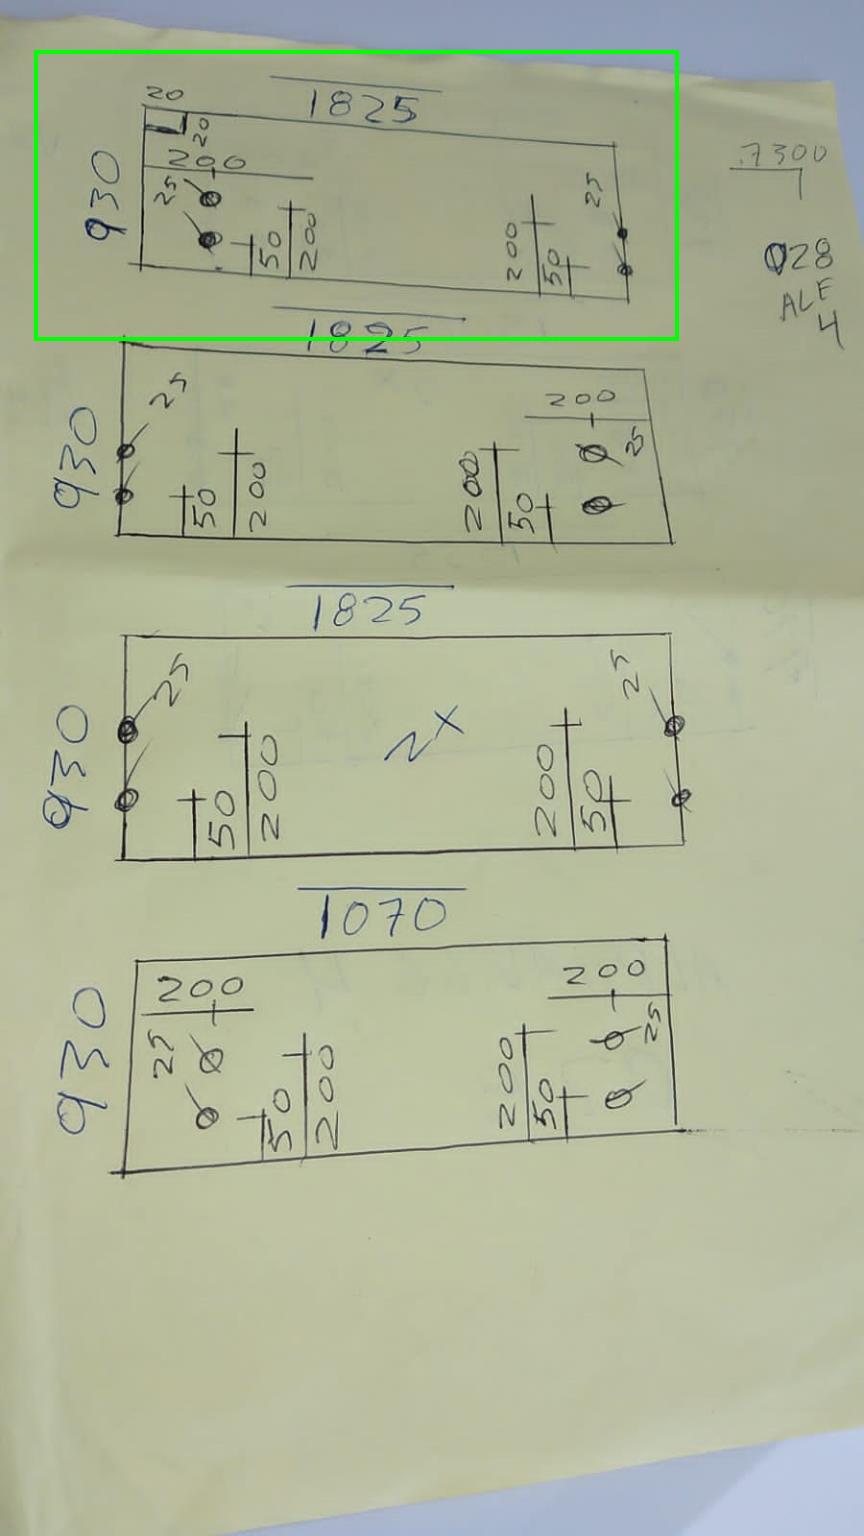 20
1825
20
930
200
25
50
200
200
50
25
.7300
028
ALF
4
1825
930
25
50
200
200
50
200
25
1825
930
25
50
200
2x
200
50
25
1070
930
200
25
50
200
200
50
200
25